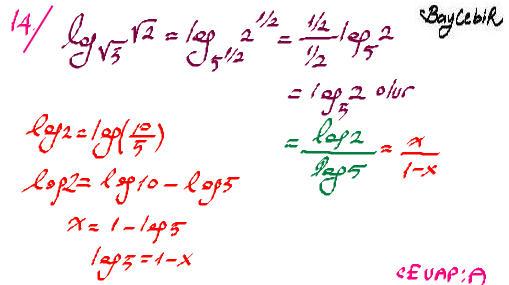 14/ log_√5 √2 = log_5^1/2 2^1/2 = (1/2)/(1/2) log_5 2
BayCebir
= log_5 2 olur
= log2/log5 = x/1-x
log2 = log(10/5)
log2 = log10 - log5
x = 1 - log5
log5 = 1-x
CEVAP: A